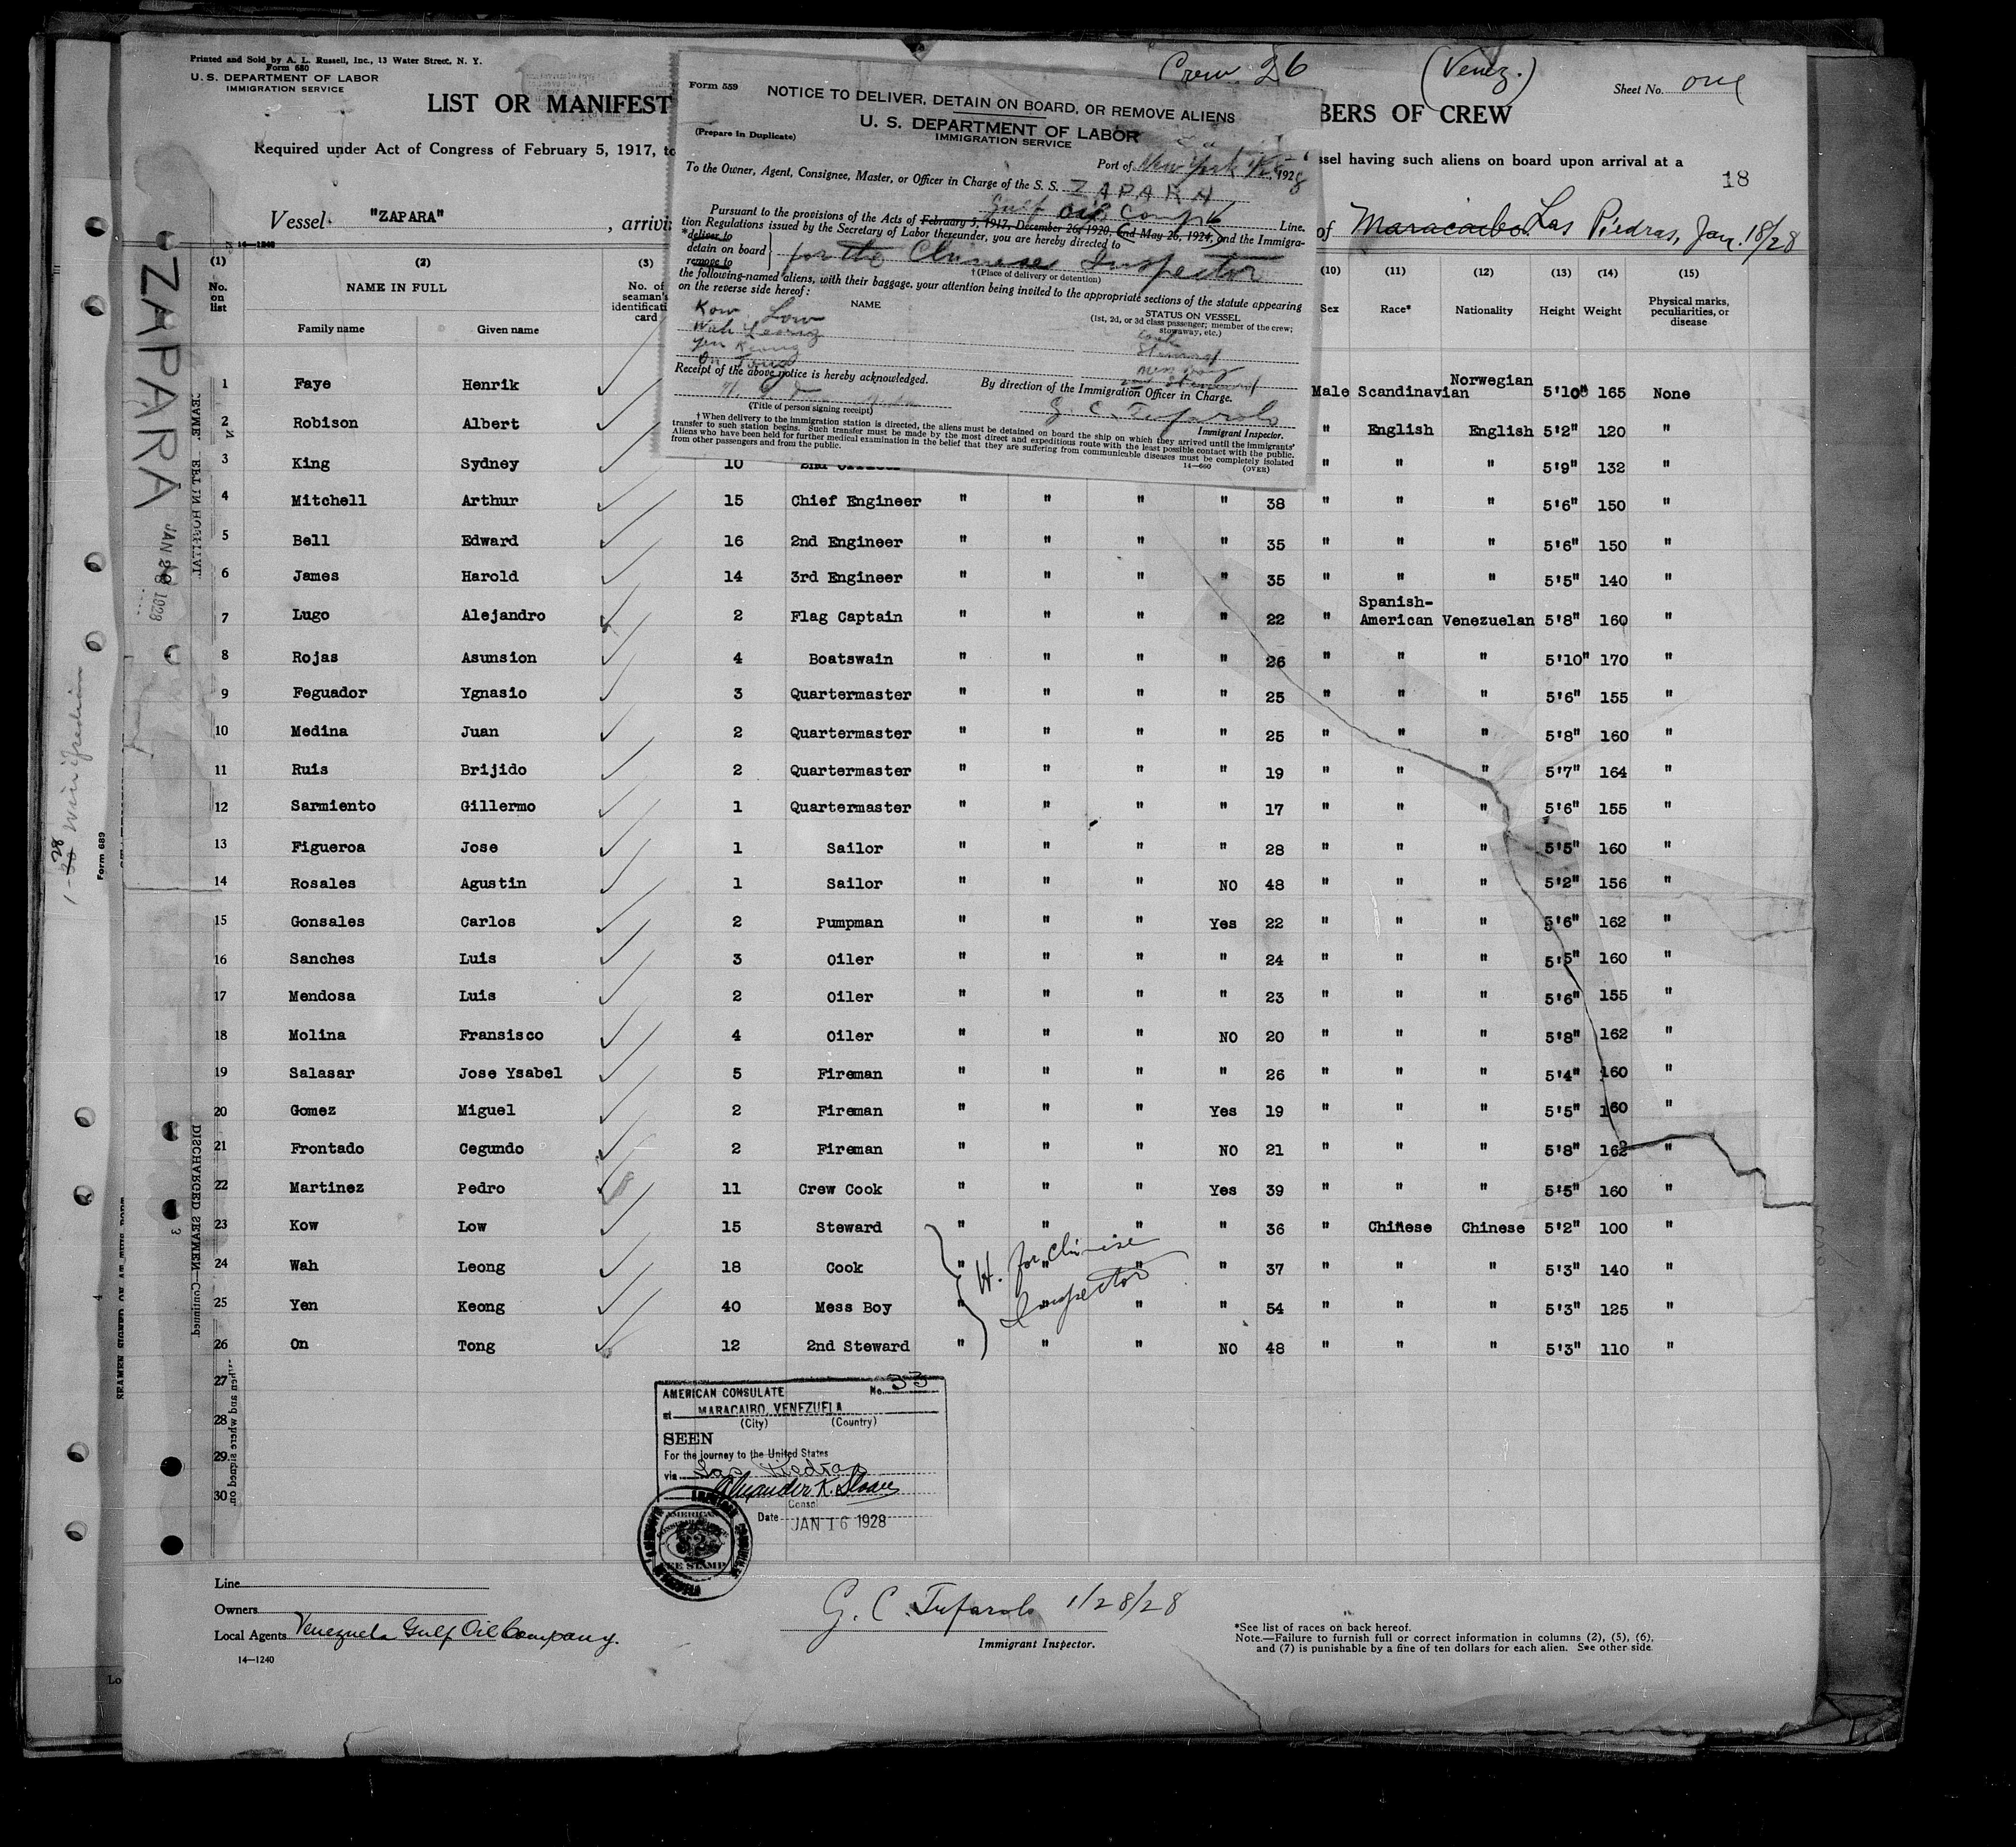 Printed and Sold by A. L. Russell, Inc., 13 Water Street, N. Y.
Form 680
U. S. DEPARTMENT OF LABOR
IMMIGRATION SERVICE
Crew 26 (Venez.)
Sheet No. one
LIST OR MANIFEST
BERS OF CREW
Required under Act of Congress of February 5, 1917, to
ssel having such aliens on board upon arrival at a
18
Vessel "ZAPARA" , arrivi
of Maracaibo. Las Piedras, Jan. 18/28
14—1240
Form 559
NOTICE TO DELIVER, DETAIN ON BOARD, OR REMOVE ALIENS
U. S. DEPARTMENT OF LABOR
(Prepare in Duplicate)
IMMIGRATION SERVICE
Port of New York 1/28, 1928
To the Owner, Agent, Consignee, Master, or Officer in Charge of the S. S. ZAPARA
Gulf Oil Line.
Pursuant to the provisions of the Acts of February 5, 1917, December 26, 1920, and May 26, 1924, and the Immigra-
tion Regulations issued by the Secretary of Labor thereunder, you are hereby directed to
*deliver to
detain on board
remove to
for the Chinese Inspector
†(Place of delivery or detention)
the following-named aliens, with their baggage, your attention being invited to the appropriate sections of the statute appearing
on the reverse side hereof:
NAME
STATUS ON VESSEL
(1st, 2d, or 3d class passenger; member of the crew;
stowaway, etc.)
Kow Low
Wah Leong
Yen Keong
On Tong
Cook
Steward
Mess Boy
2nd Steward
Receipt of the above notice is hereby acknowledged.
By direction of the Immigration Officer in Charge.
(Title of person signing receipt)
G. C. Tufarolo
Immigrant Inspector.
†When delivery to the immigration station is directed, the aliens must be detained on board the ship on which they arrived until the immigrants'
transfer to such station begins. Such transfer must be made by the most direct and expeditious route with the least possible contact with the public.
Aliens who have been held for further medical examination in the belief that they are suffering from communicable diseases must be completely isolated
from other passengers and from the public.
14—660 (OVER)
(1) (2) (3) (10) (11) (12) (13) (14) (15)
No. on list NAME IN FULL No. of seaman's identificati card Sex Race* Nationality Height Weight Physical marks, peculiarities, or disease
Family name Given name
1 Faye Henrik Male Scandinavian Norwegian 5'10" 165 None
2 Robison Albert " English English 5'2" 120 "
3 King Sydney 10 2nd Officer " " " 5'9" 132 "
4 Mitchell Arthur 15 Chief Engineer " " " " 38 " " " 5'6" 150 "
5 Bell Edward 16 2nd Engineer " " " " 35 " " " 5'6" 150 "
6 James Harold 14 3rd Engineer " " " " 35 " " " 5'5" 140 "
7 Lugo Alejandro 2 Flag Captain " " " " 22 " Spanish-American Venezuelan 5'8" 160 "
8 Rojas Asunsion 4 Boatswain " " " " 26 " " " 5'10" 170 "
9 Feguador Ygnasio 3 Quartermaster " " " " 25 " " " 5'6" 155 "
10 Medina Juan 2 Quartermaster " " " " 25 " " " 5'8" 160 "
11 Ruis Brijido 2 Quartermaster " " " " 19 " " " 5'7" 164 "
12 Sarmiento Gillermo 1 Quartermaster " " " " 17 " " " 5'6" 155 "
13 Figueroa Jose 1 Sailor " " " " 28 " " " 5'5" 160 "
14 Rosales Agustin 1 Sailor " " " NO 48 " " " 5'2" 156 "
15 Gonsales Carlos 2 Pumpman " " " Yes 22 " " " 5'6" 162 "
16 Sanches Luis 3 Oiler " " " " 24 " " " 5'5" 160 "
17 Mendosa Luis 2 Oiler " " " " 23 " " " 5'6" 155 "
18 Molina Fransisco 4 Oiler " " " NO 20 " " " 5'8" 162 "
19 Salasar Jose Ysabel 5 Fireman " " " " 26 " " " 5'4" 160 "
20 Gomez Miguel 2 Fireman " " " Yes 19 " " " 5'5" 160 "
21 Frontado Cegundo 2 Fireman " " " NO 21 " " " 5'8" 162 "
22 Martinez Pedro 11 Crew Cook " " " Yes 39 " " " 5'5" 160 "
23 Kow Low 15 Steward " " " " 36 " Chinese Chinese 5'2" 100 "
24 Wah Leong 18 Cook " " " " 37 " " " 5'3" 140 "
25 Yen Keong 40 Mess Boy " " " " 54 " " " 5'3" 125 "
26 On Tong 12 2nd Steward " " " NO 48 " " " 5'3" 110 "
H. for Chinese
Inspector
27
28
29
30
AMERICAN CONSULATE No. 33
at MARACAIBO, VENEZUELA
(City) (Country)
SEEN
For the journey to the United States
via Las Piedras
Alexander K. Sloan
Consul
Date JAN 16 1928
AMERICAN
FEE STAMP
Line
Owners
Local Agents Venezuela Gulf Oil Company.
14—1240
G. C. Tufarolo 1/28/28
Immigrant Inspector.
*See list of races on back hereof.
Note.—Failure to furnish full or correct information in columns (2), (5), (6),
and (7) is punishable by a fine of ten dollars for each alien. See other side
ZAPARA
JAN 28 1928
DISCHARGED SEAMEN—Continued.
Form 689